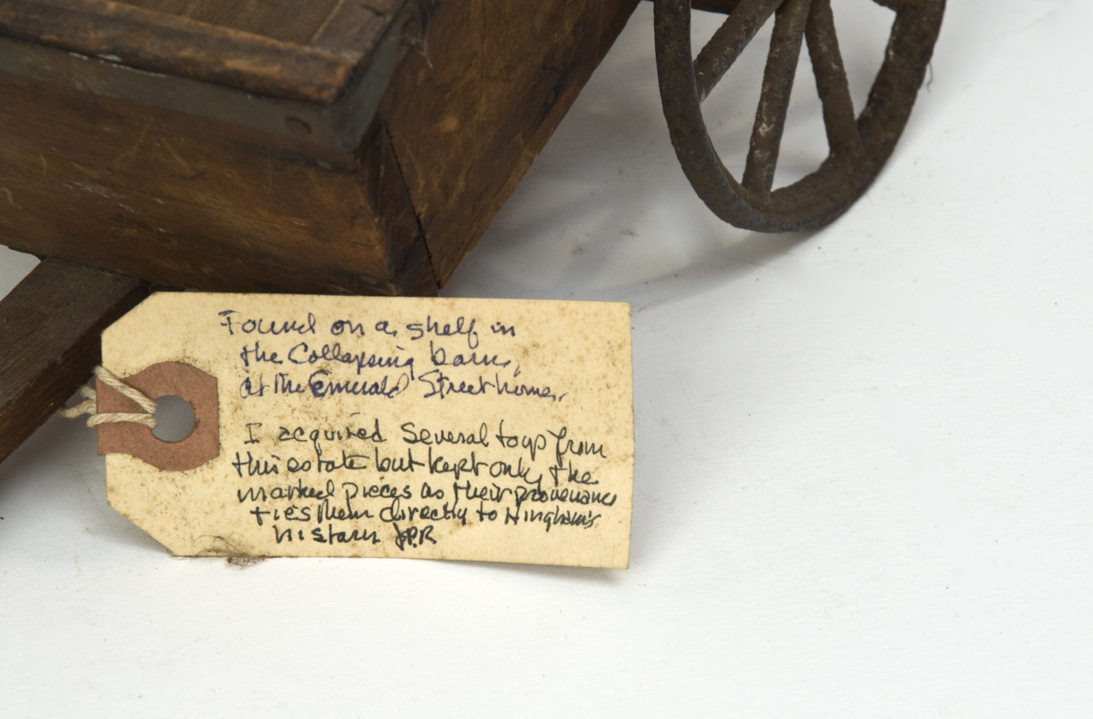 Found on a shelf in
the Collapsing barn,
at the Emerald Street home.
I acquired several toys from
this estate but kept only the
marked pieces as their provenance
ties them directly to Hingham's
history JPR